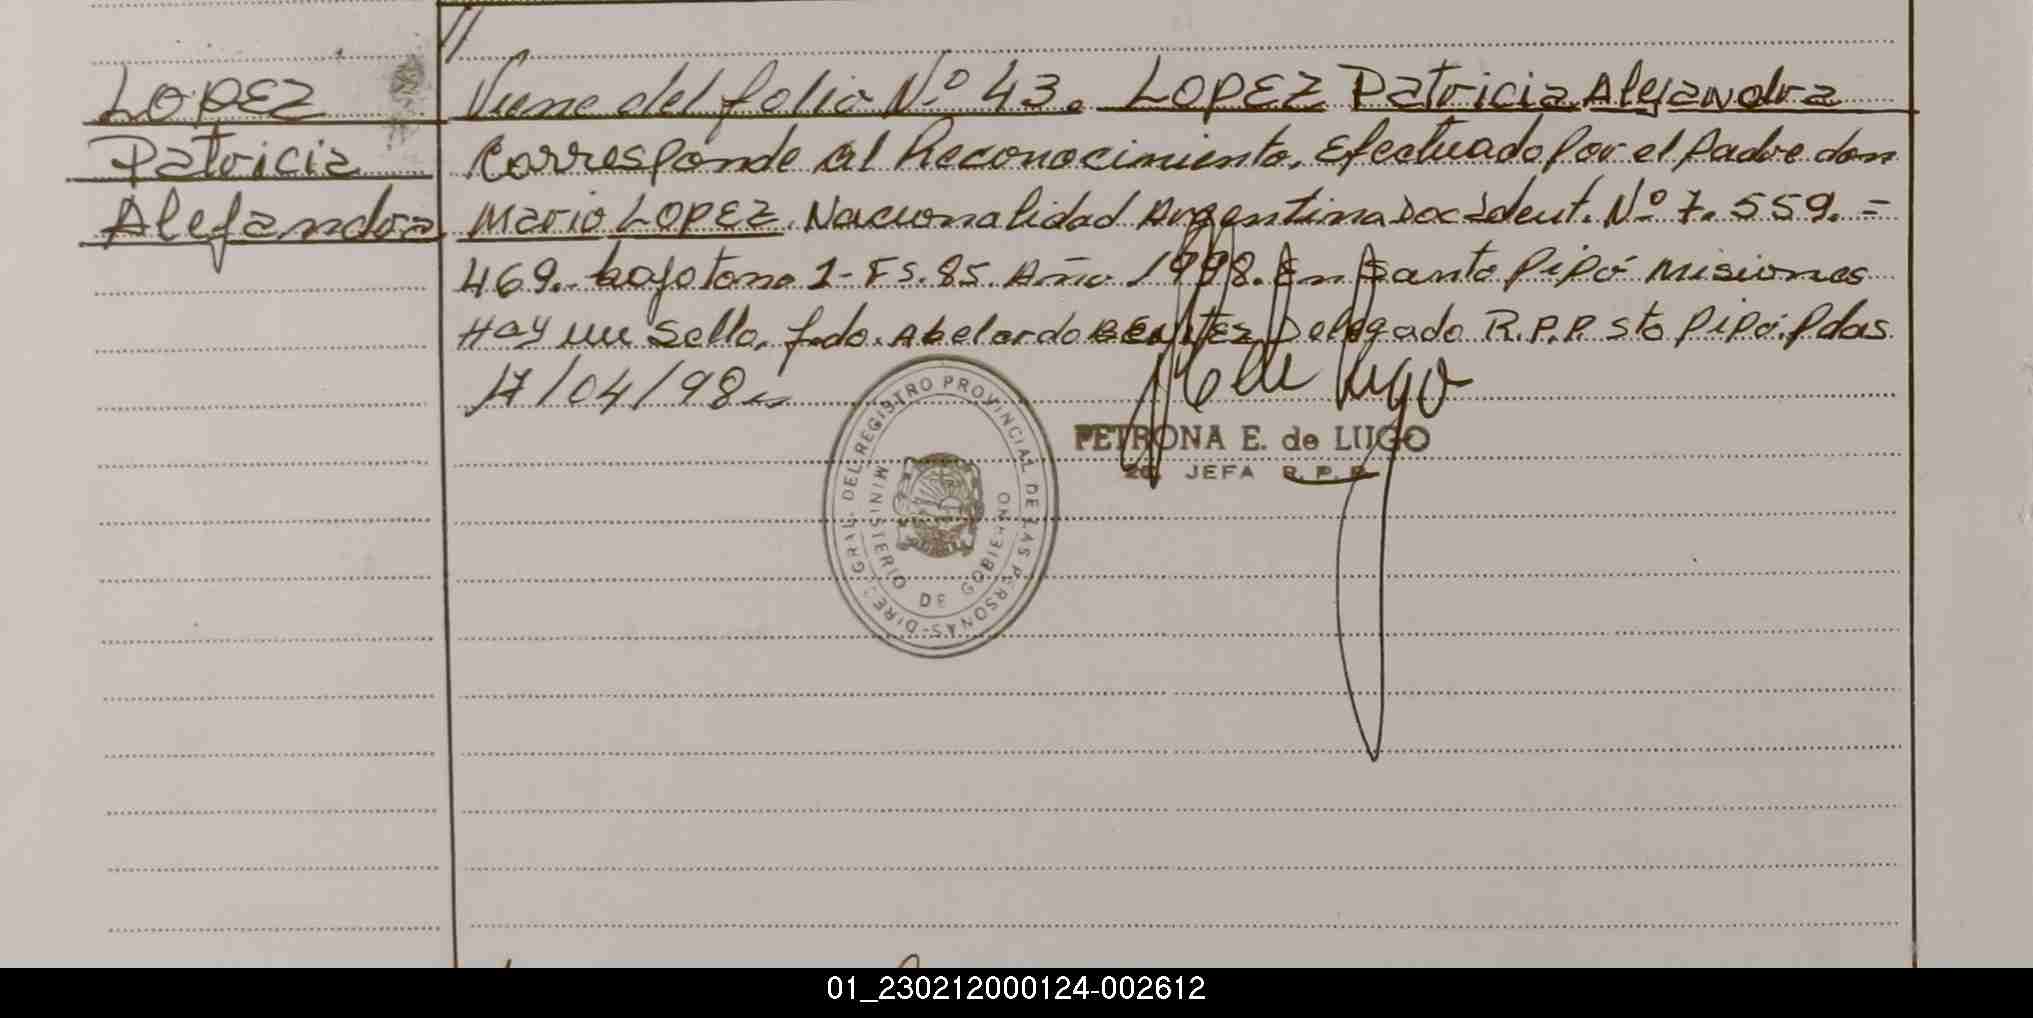 LOPEZ
Patricia
Alejandra
//
Viene del folio Nº 43. LOPEZ Patricia Alejandra
Corresponde al Reconocimiento, Efectuado por el Padre don
Mario LOPEZ. Nacionalidad Argentina Doc Ident. Nº 7.559.=
469.- bajo tomo 1- Fs. 85. Año 1998. En Santo Pipó Misiones
Hay un Sello, fdo. Abelardo BENITEZ Delegado R.P.P. Sto Pipó. Pdas
17/04/98
PETRONA E. de LUGO
2a. JEFA R. P. P.
DIREC. GRAL. DEL REGISTRO PROVINCIAL DE LAS PERSONAS-
MINISTERIO DE GOBIERNO
01_230212000124-002612